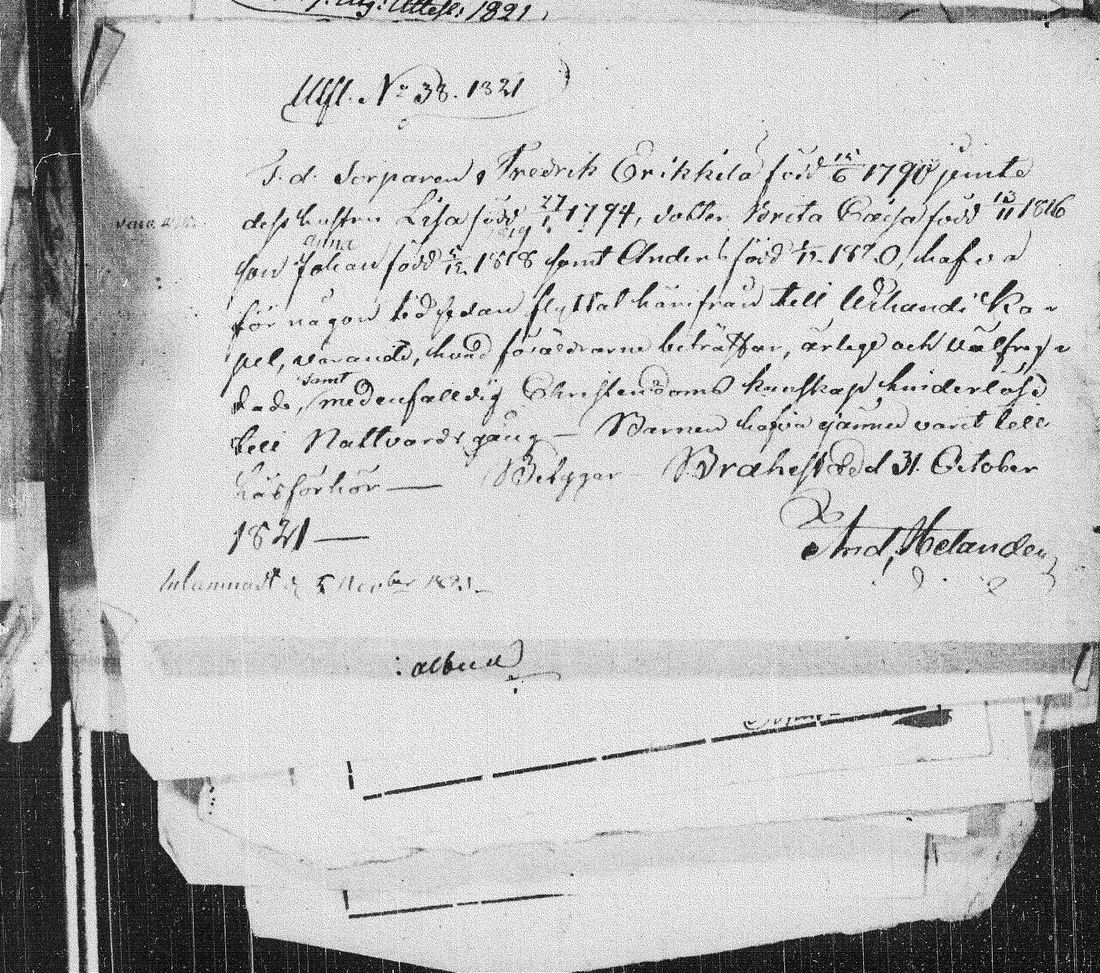 Attest. 1821.
Uttfl. No 38. 1821
F. d. Torparen Fredrik Erikkilä född 12/6 1790 jemte
dess hustru Lisa född 27/1 1794, dotter Brita Cajsa född 13/11 1816
son Johan född /12 1818 samt Anders född /12 1820, hafva
för någon tid sedan flyttat härifrån till Ka-
pel, varande, hvad föräldrarne beträffar, ärlige och välfrej-
dade, samt med enfalldig Christendoms kunskap, hinderlöse
till Nattvards gång — Barnen hafva jämnväl varit till
Läsförhör — Betygar Brahestad d 31. October
1821 —
And, Helander
Inlämnadt d 5 1821.